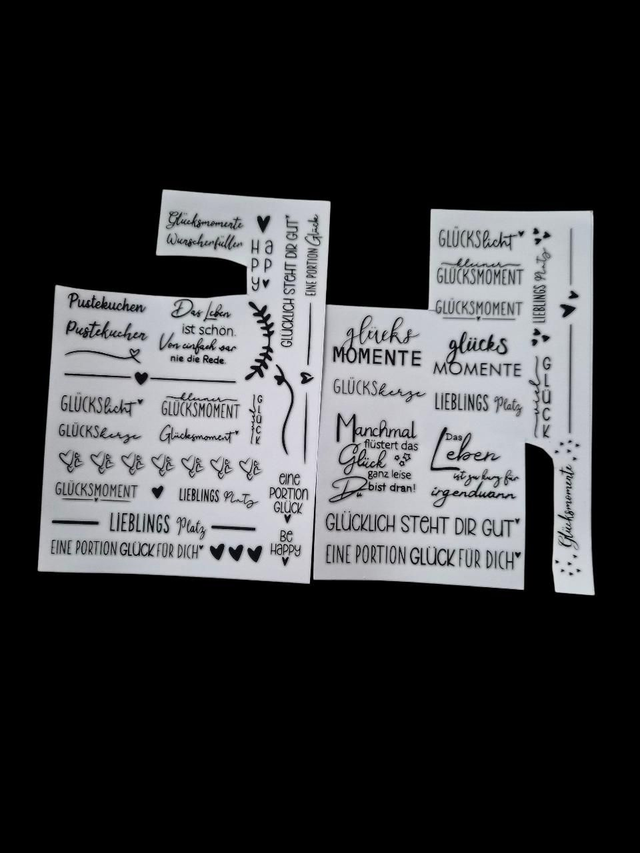 Glücksmomente
Wünscherfüller
H a
p p
y
GLÜCKLICH STEHT DIR GUT
EINE PORTION Glück
Pustekuchen
Pustekuchen
Das Leben
ist schön.
Von einfach war
nie die Rede.
GLÜCKSlicht
kleiner
GLÜCKSMOMENT
GLÜCK
GLÜCKSkerze
Glücksmoment
GLÜCKSMOMENT
LIEBLINGS Platz
eine
PORTION
GLÜCK
LIEBLINGS Platz
Be
HAPPY
EINE PORTION GLÜCK FÜR DICH
GLÜCKSlicht
kleiner
GLÜCKSMOMENT
GLÜCKSMOMENT
LIEBLINGS Platz
glücks
MOMENTE
glücks
MOMENTE
GLÜCKSkerze
LIEBLINGS Platz
viel
GLÜCK
Manchmal
flüstert das
Glück
ganz leise
Du bist dran!
Das
Leben
ist zu kurz für
irgendwann
Glücksmomente
GLÜCKLICH STEHT DIR GUT
EINE PORTION GLÜCK FÜR DICH